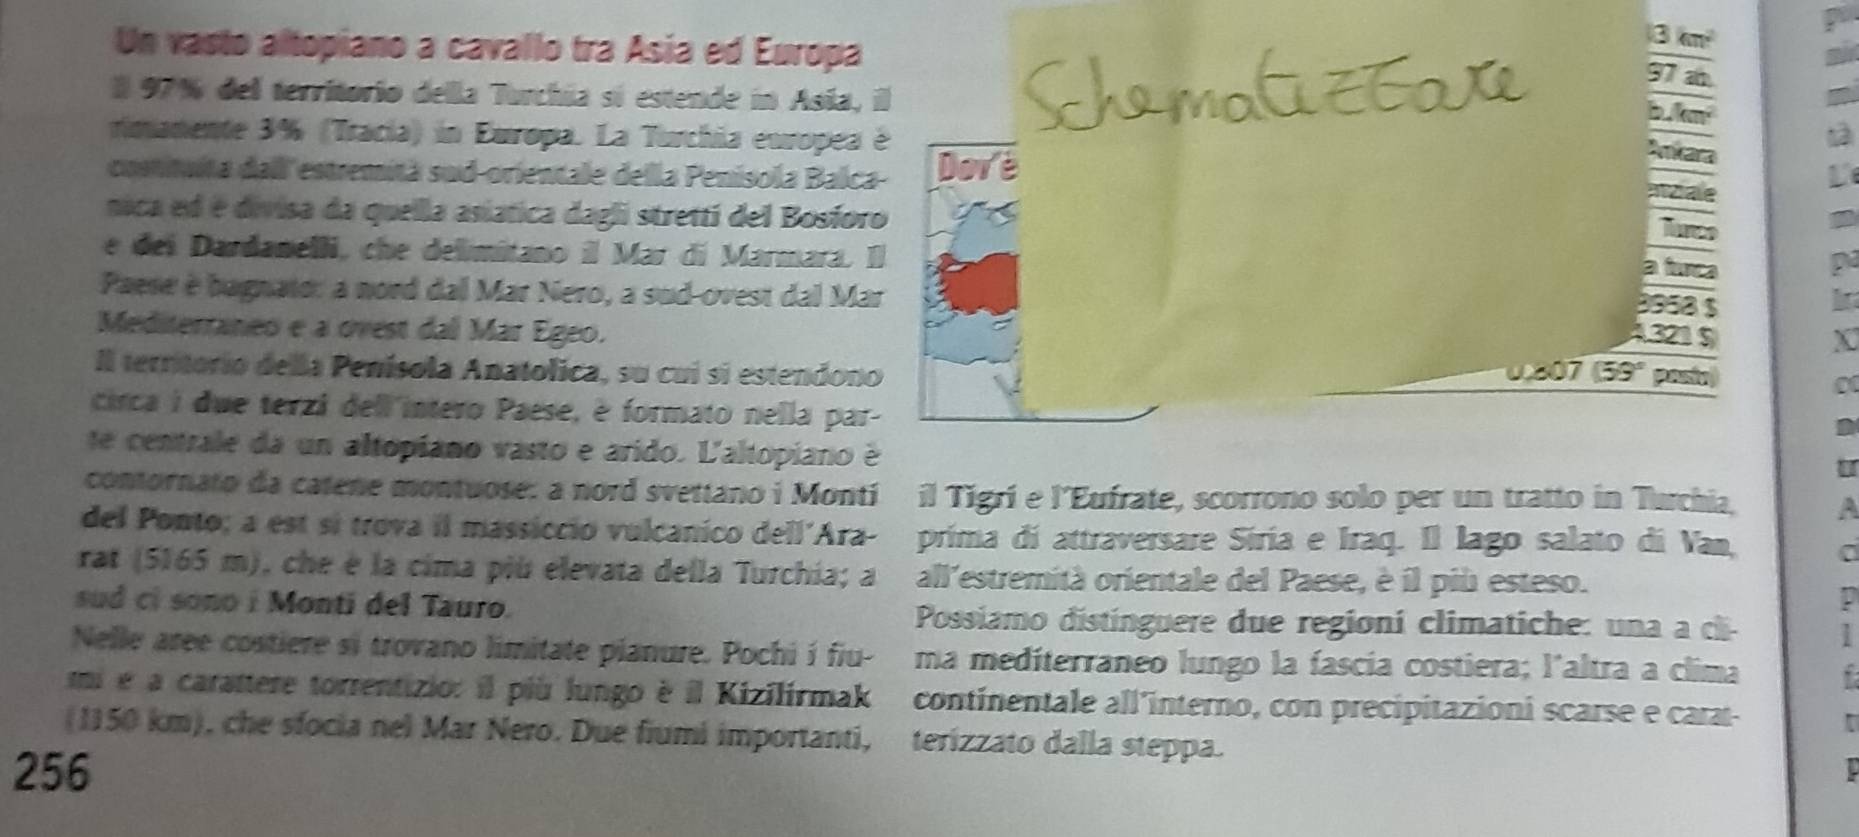 Un vasto altopiano a cavallo tra Asia ed Europa
Il 97% del territorio della Turchia si estende in Asia, il
rimanente 3% (Tracia) in Europa. La Turchia europea è
costituita dall'estremità sud-orientale della Penisola Balca-
nica ed è divisa da quella asiatica dagli stretti del Bosforo
e dei Dardanelli, che delimitano il Mar di Marmara. Il
Paese è bagnato: a nord dal Mar Nero, a sud-ovest dal Mar
Mediterraneo e a ovest dal Mar Egeo.
Il territorio della Penisola Anatolica, su cui si estendono
circa i due terzi dell'intero Paese, è formato nella par-
te centrale da un altopiano vasto e arido. L'altopiano è
contornato da catene montuose: a nord svettano i Monti
del Ponto; a est si trova il massiccio vulcanico dell'Ara-
rat (5165 m), che è la cima più elevata della Turchia; a
sud ci sono i Monti del Tauro.
Nelle aree costiere si trovano limitate pianure. Pochi i fiu-
mi e a carattere torrentizio: il più lungo è il Kizilirmak
(1150 km), che sfocia nel Mar Nero. Due fiumi importanti,
256
Schematizzare
Dov'è
13 km²
97 ab.
b./km²
Ankara
enziale
Turco
a turca
8958 $
4.321 $)
0,807 (59° posto)
il Tigri e l'Eufrate, scorrono solo per un tratto in Turchia,
prima di attraversare Siria e Iraq. Il lago salato di Van,
all'estremità orientale del Paese, è il più esteso.
Possiamo distinguere due regioni climatiche: una a cli-
ma mediterraneo lungo la fascia costiera; l'altra a clima
continentale all'interno, con precipitazioni scarse e carat-
terizzato dalla steppa.